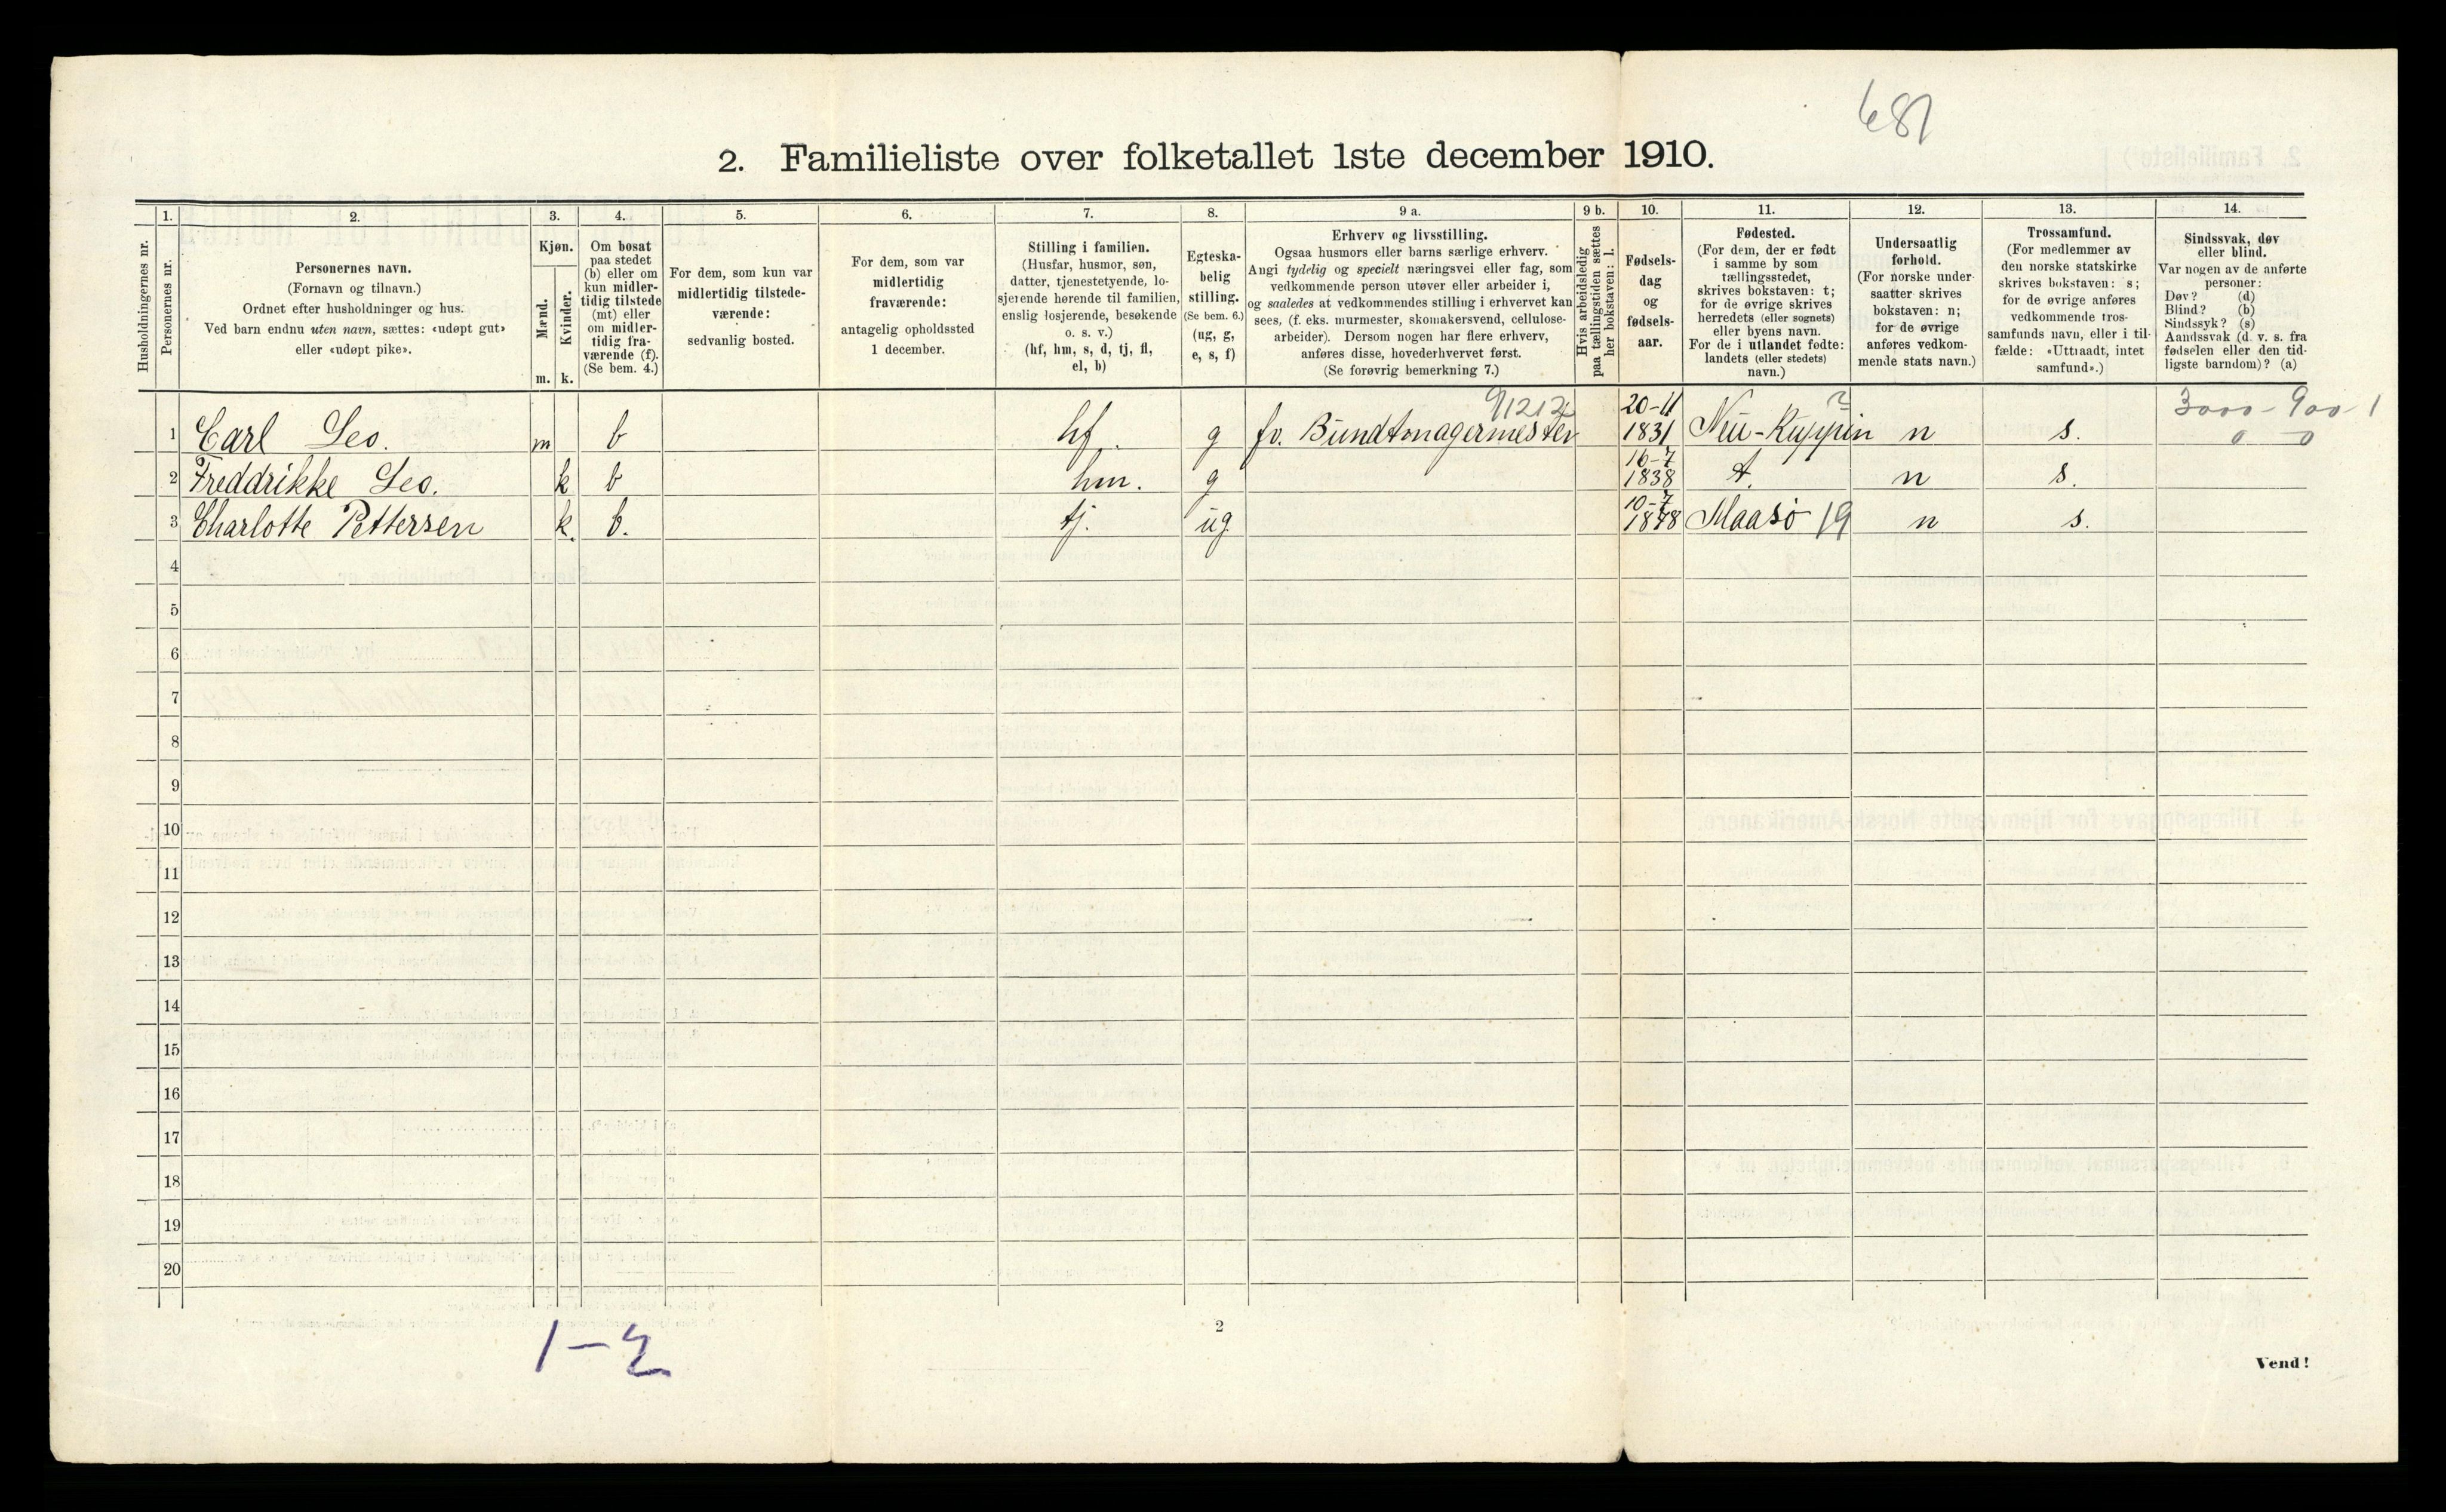 681
2. Familieliste over folketallet 1ste december 1910.
Husholdningernes nr.
1.
Personernes nr.
2.
Personernes navn.
(Fornavn og tilnavn.)
Ordnet efter husholdninger og hus.
Ved barn endnu uten navn, sættes: «udøpt gut»
eller «udøpt pike».
3.
Kjøn.
Mænd.
Kvinder.
m. k.
4.
Om bosat
paa stedet
(b) eller om
kun midler-
tidig tilstede
(mt) eller
om midler-
tidig fra-
værende (f).
(Se bem. 4.)
5.
For dem, som kun var
midlertidig tilstede-
værende:
sedvanlig bosted.
6.
For dem, som var
midlertidig
fraværende:
antagelig opholdssted
1 december.
7.
Stilling i familien.
(Husfar, husmor, søn,
datter, tjenestetyende, lo-
sjerende hørende til familien,
enslig losjerende, besøkende
o. s. v.)
(hf, hm, s, d, tj, fl,
el, b)
8.
Egteska-
belig
stilling.
(Se bem. 6.)
(ug, g,
e, s, f)
9 a.
Erhverv og livsstilling.
Ogsaa husmors eller barns særlige erhverv.
Angi tydelig og specielt næringsvei eller fag, som
vedkommende person utøver eller arbeider i,
og saaledes at vedkommendes stilling i erhvervet kan
sees, (f. eks. murmester, skomakersvend, cellulose-
arbeider). Dersom nogen har flere erhverv,
anføres disse, hovederhvervet først.
(Se forøvrig bemerkning 7.)
9 b.
Hvis arbeidsledig
paa tællingstiden sættes
her bokstaven: l.
10.
Fødsels-
dag
og
fødsels-
aar.
11.
Fødested.
(For dem, der er født
i samme by som
tællingsstedet,
skrives bokstaven: t;
for de øvrige skrives
herredets (eller sognets)
eller byens navn.
For de i utlandet fødte:
landets (eller stedets)
navn.)
12.
Undersaatlig
forhold.
(For norske under-
saatter skrives
bokstaven: n;
for de øvrige
anføres vedkom-
mende stats navn.)
13.
Trossamfund.
(For medlemmer av
den norske statskirke
skrives bokstaven: s;
for de øvrige anføres
vedkommende tros-
samfunds navn, eller i til-
fælde: «Uttraadt, intet
samfund».)
14.
Sindssvak, døv
eller blind.
Var nogen av de anførte
personer:
Døv? (d)
Blind? (b)
Sindssyk? (s)
Aandssvak (d. v. s. fra
fødselen eller den tid-
ligste barndom)? (a)
91212 20-11 ? 3000-900-1
1 Carl Leo. m b hf. g fv. Bundtmagermester 1831 Neu-Ruppin n s. 0 0
16-7
2 Freddrikke Leo. k b hm. g 1838 t. n s.
10-7
3 Charlotte Pettersen k. b. tj. ug 1878 Maasö 19 n s.
4
5
6
7
8
9
10
11
12
13
14
15
16
17
18
19
20
1-2
2
Vend!